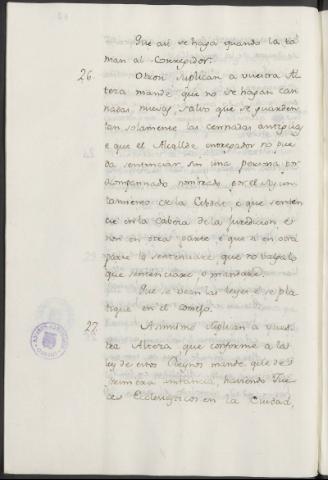 Que asi se haga quando la to
man al Corregidor.
26. Otrosi suplican a vuestra Al
teza mande que no se hagan can
nadas nuevas, salvo que se guarden
tan solamente las cannadas antiguas
e que el Alcalde entregador no pue
da sentenciar sin una persona por
acompannado nombrado por el Ayun
tamiento de la Cibdad, e que senten
cie en la cabeza de la juredicion, e
non en otra parte e que si en otra
parte lo sentenciare, que no valga lo
que sentenciare o mandare.
Que se vean las leyes e se pla
tique en el consejo.
27. Asimismo suplican a vues
tra Alteza que conforme a la
ley de estos Reynos mande que de
primera instancia, haviendo Jue
ces Eclesiasticos en la Ciudad,